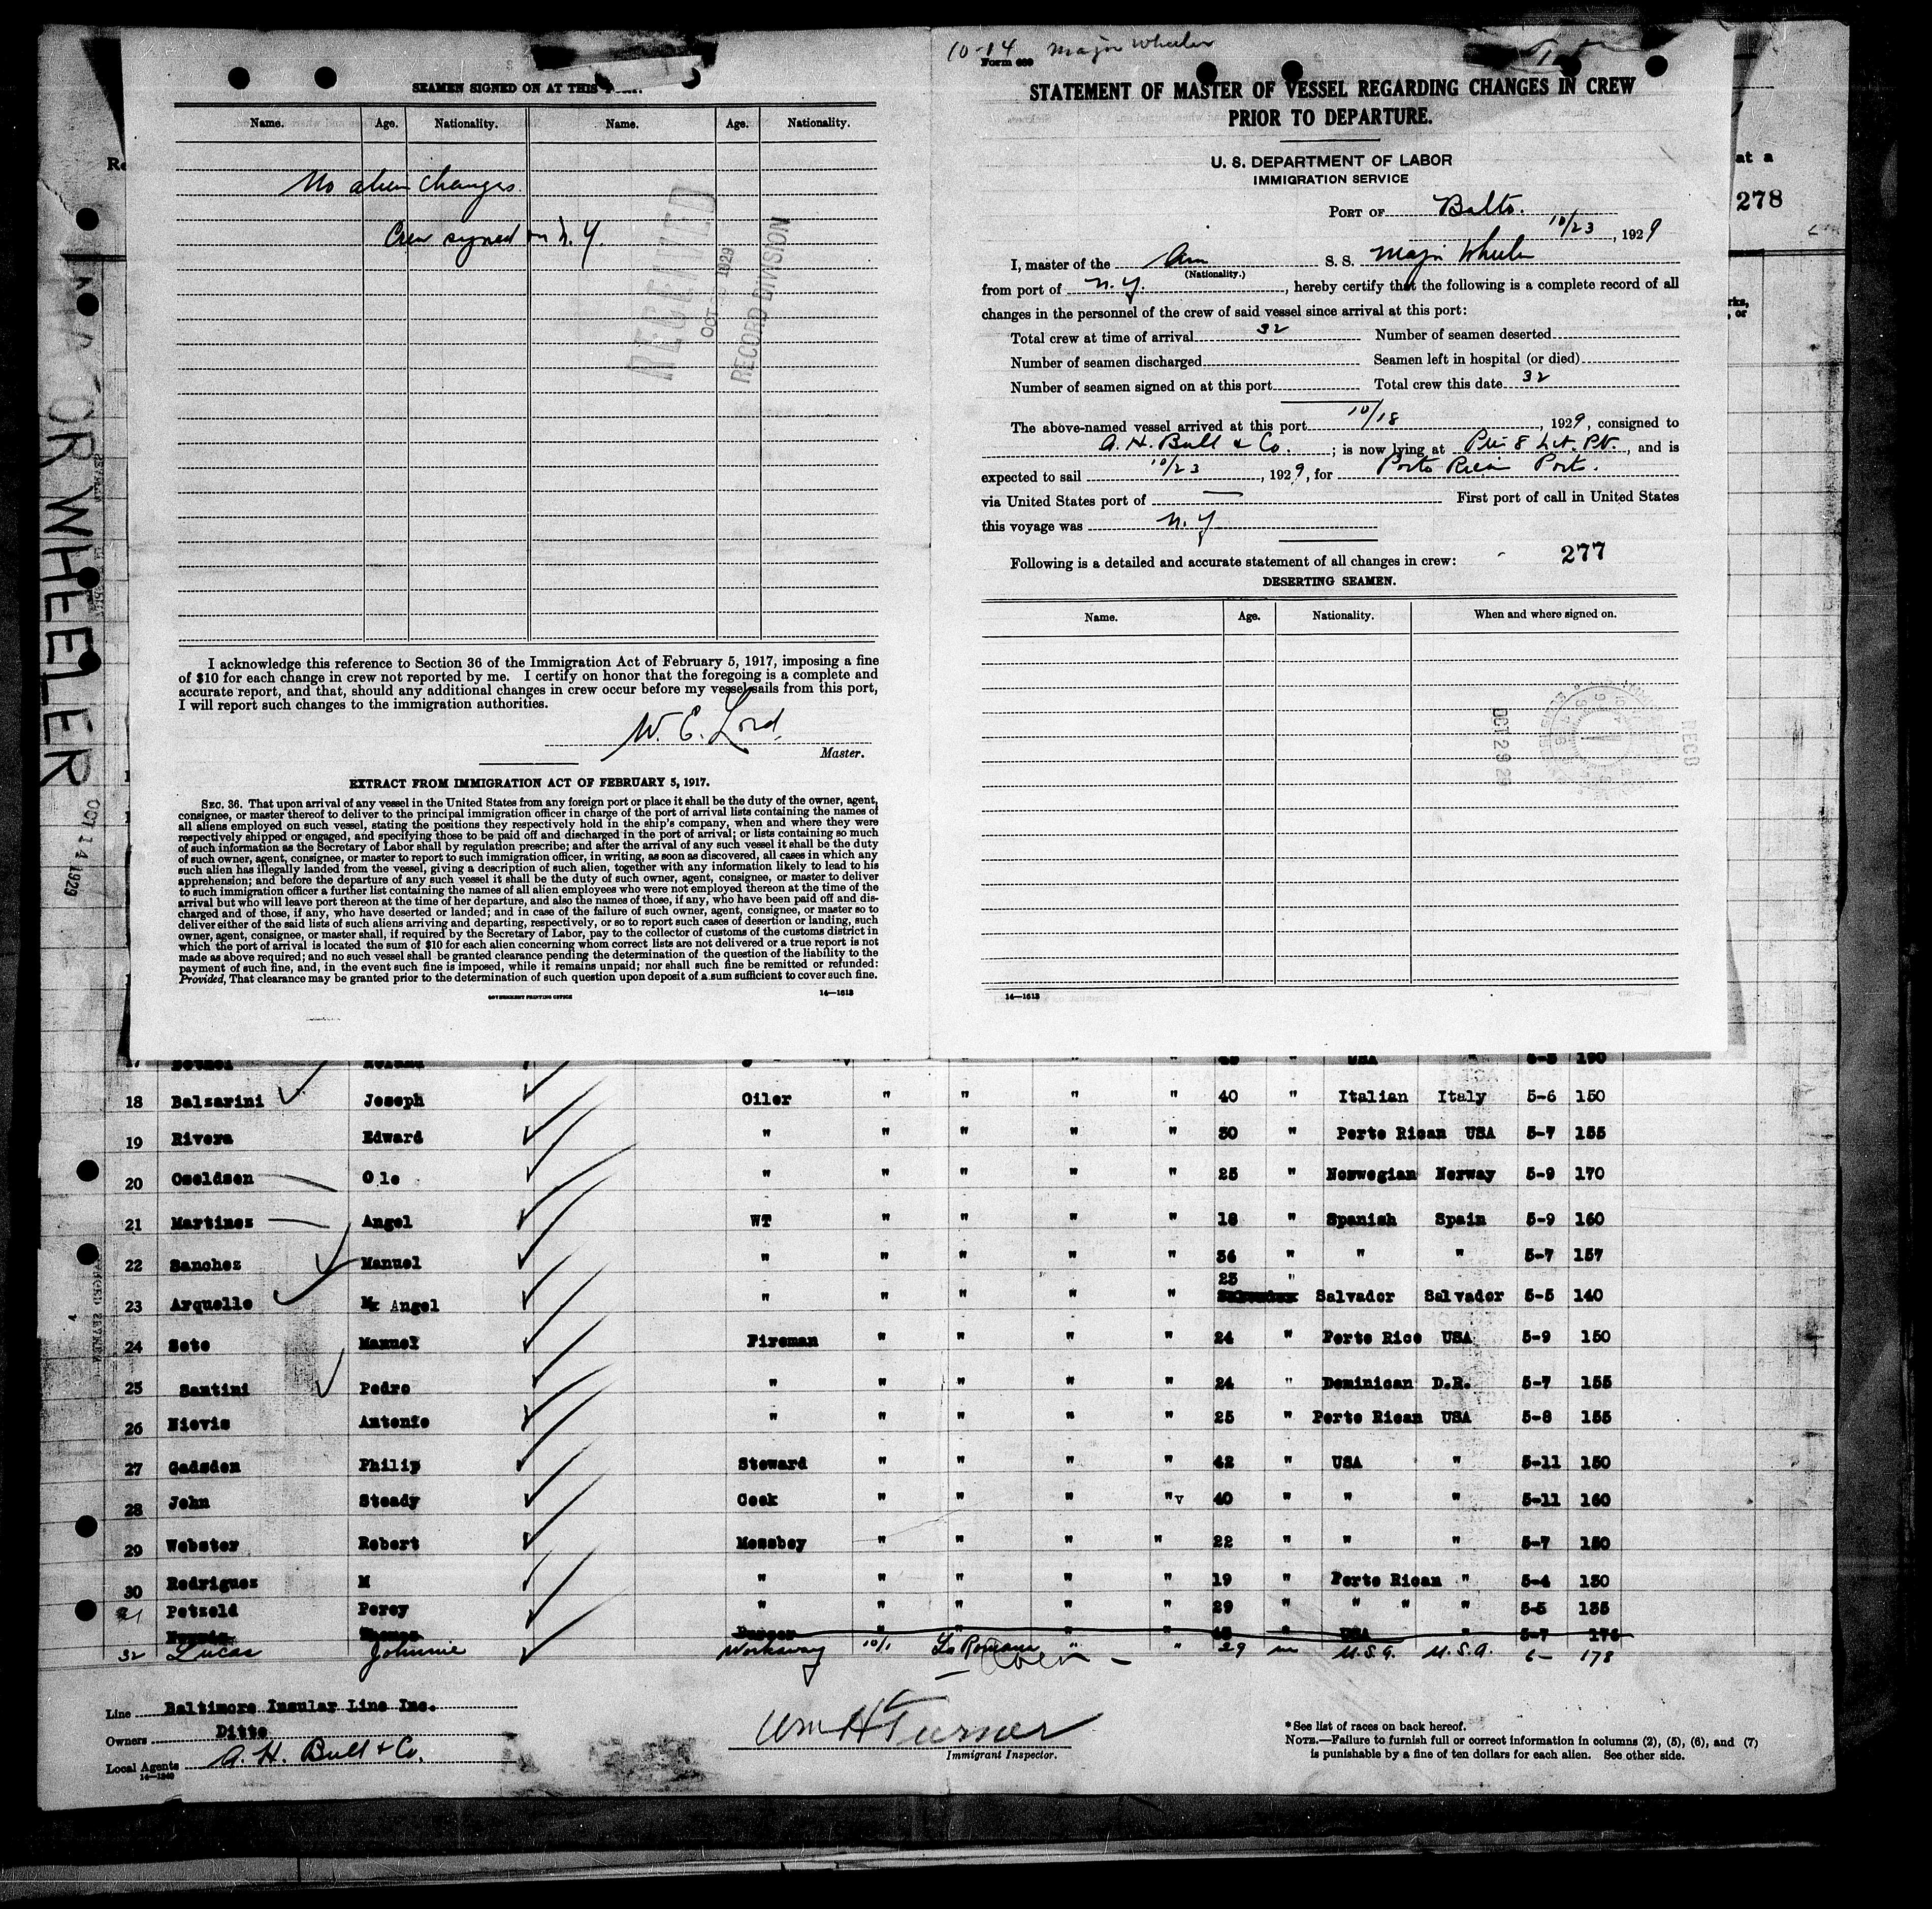 SEAMEN SIGNED ON AT THIS
Name. Age. Nationality. Name. Age. Nationality.
No alien changes.
Crew signed on N.Y.
RECEIVED
OCT 1929
RECORD DIVISION
I acknowledge this reference to Section 36 of the Immigration Act of February 5, 1917, imposing a fine
of $10 for each change in crew not reported by me. I certify on honor that the foregoing is a complete and
accurate report, and that, should any additional changes in crew occur before my vessel sails from this port,
I will report such changes to the immigration authorities.
W. E. Lord
Master.
EXTRACT FROM IMMIGRATION ACT OF FEBRUARY 5, 1917.
SEC. 36. That upon arrival of any vessel in the United States from any foreign port or place it shall be the duty of the owner, agent,
consignee, or master thereof to deliver to the principal immigration officer in charge of the port of arrival lists containing the names of
all aliens employed on such vessel, stating the positions they respectively hold in the ship's company, when and where they were
respectively shipped or engaged, and specifying those to be paid off and discharged in the port of arrival; or lists containing so much
of such information as the Secretary of Labor shall by regulation prescribe; and after the arrival of any such vessel it shall be the duty
of such owner, agent, consignee, or master to report to such immigration officer, in writing, as soon as discovered, all cases in which any
such alien has illegally landed from the vessel, giving a description of such alien, together with any information likely to lead to his
apprehension; and before the departure of any such vessel it shall be the duty of such owner, agent, consignee, or master to deliver
to such immigration officer a further list containing the names of all alien employees who were not employed thereon at the time of the
arrival but who will leave port thereon at the time of her departure, and also the names of those, if any, who have been paid off and dis-
charged and of those, if any, who have deserted or landed; and in case of the failure of such owner, agent, consignee, or master so to
deliver either of the said lists of such aliens arriving and departing, respectively, or so to report such cases of desertion or landing, such
owner, agent, consignee, or master shall, if required by the Secretary of Labor, pay to the collector of customs of the customs district in
which the port of arrival is located the sum of $10 for each alien concerning whom correct lists are not delivered or a true report is not
made as above required; and no such vessel shall be granted clearance pending the determination of the question of the liability to the
payment of such fine, and, in the event such fine is imposed, while it remains unpaid; nor shall such fine be remitted or refunded:
Provided, That clearance may be granted prior to the determination of such question upon deposit of a sum sufficient to cover such fine.
GOVERNMENT PRINTING OFFICE 14—1613
10-14 Major Wheeler
Form 689
STATEMENT OF MASTER OF VESSEL REGARDING CHANGES IN CREW
PRIOR TO DEPARTURE.
U. S. DEPARTMENT OF LABOR
IMMIGRATION SERVICE
PORT OF Balto.
10/23, 1929
I, master of the Am S. S. Major Wheeler
(Nationality.)
from port of N. Y., hereby certify that the following is a complete record of all
changes in the personnel of the crew of said vessel since arrival at this port:
Total crew at time of arrival 32 Number of seamen deserted
Number of seamen discharged Seamen left in hospital (or died)
Number of seamen signed on at this port Total crew this date 32
The above-named vessel arrived at this port 10/18, 1929, consigned to
A. H. Bull & Co.; is now lying at Pier 8, and is
expected to sail 10/23, 1929, for Porto Rican Port.
via United States port of — First port of call in United States
this voyage was N. Y
Following is a detailed and accurate statement of all changes in crew: 277
DESERTING SEAMEN.
Name. Age. Nationality. When and where signed on.
OCT 29 29
REC'D
14—1613
at a
278
rks,
, or
OR WHEELER OCT 14 1929
18 Balzarini Joseph Oiler " " " " 40 " Italian Italy 5-6 150
19 Rivera Edward " " " " " 30 " Porto Rican USA 5-7 155
20 Oseldsen Ole " " " " " 25 " Norwegian Norway 5-9 170
21 Martinez Angel WT " " " " 18 " Spanish Spain 5-9 160
22 Sanchez Manuel " " " " " 36 " " " 5-7 157
23 "
23 Arquello Angel " " " " " Salvador Salvador 5-5 140
24 Soto Manuel Fireman " " " " 24 " Porto Rico USA 5-9 150
25 Santini Pedro " " " " " 24 " Dominican D.R. 5-7 155
26 Nievis Antonio " " " " " 25 " Porto Rican USA 5-8 155
27 Gadsden Philip Steward " " " " 42 " USA " 5-11 150
28 John Steady Cook " " " " 40 " " " 5-11 160
29 Webster Robert Messboy " " " " 22 " " " 5-7 150
30 Rodriguez M " " " " " 19 " Porto Rican " 5-4 130
31 Petzold Percy " " " " " 29 " " " " 5-5 135
32 Lucas Johnnie Workaway 10/1 La Romana " " 29 m U.S.A. U.S.A. 6- 178
Line Baltimore Insular Line Inc.
Owners Ditto
Local Agents A. H. Bull & Co.
14—1240
Wm H Turner
Immigrant Inspector.
* See list of races on back hereof.
NOTE.—Failure to furnish full or correct information in columns (2), (5), (6), and (7)
is punishable by a fine of ten dollars for each alien. See other side.